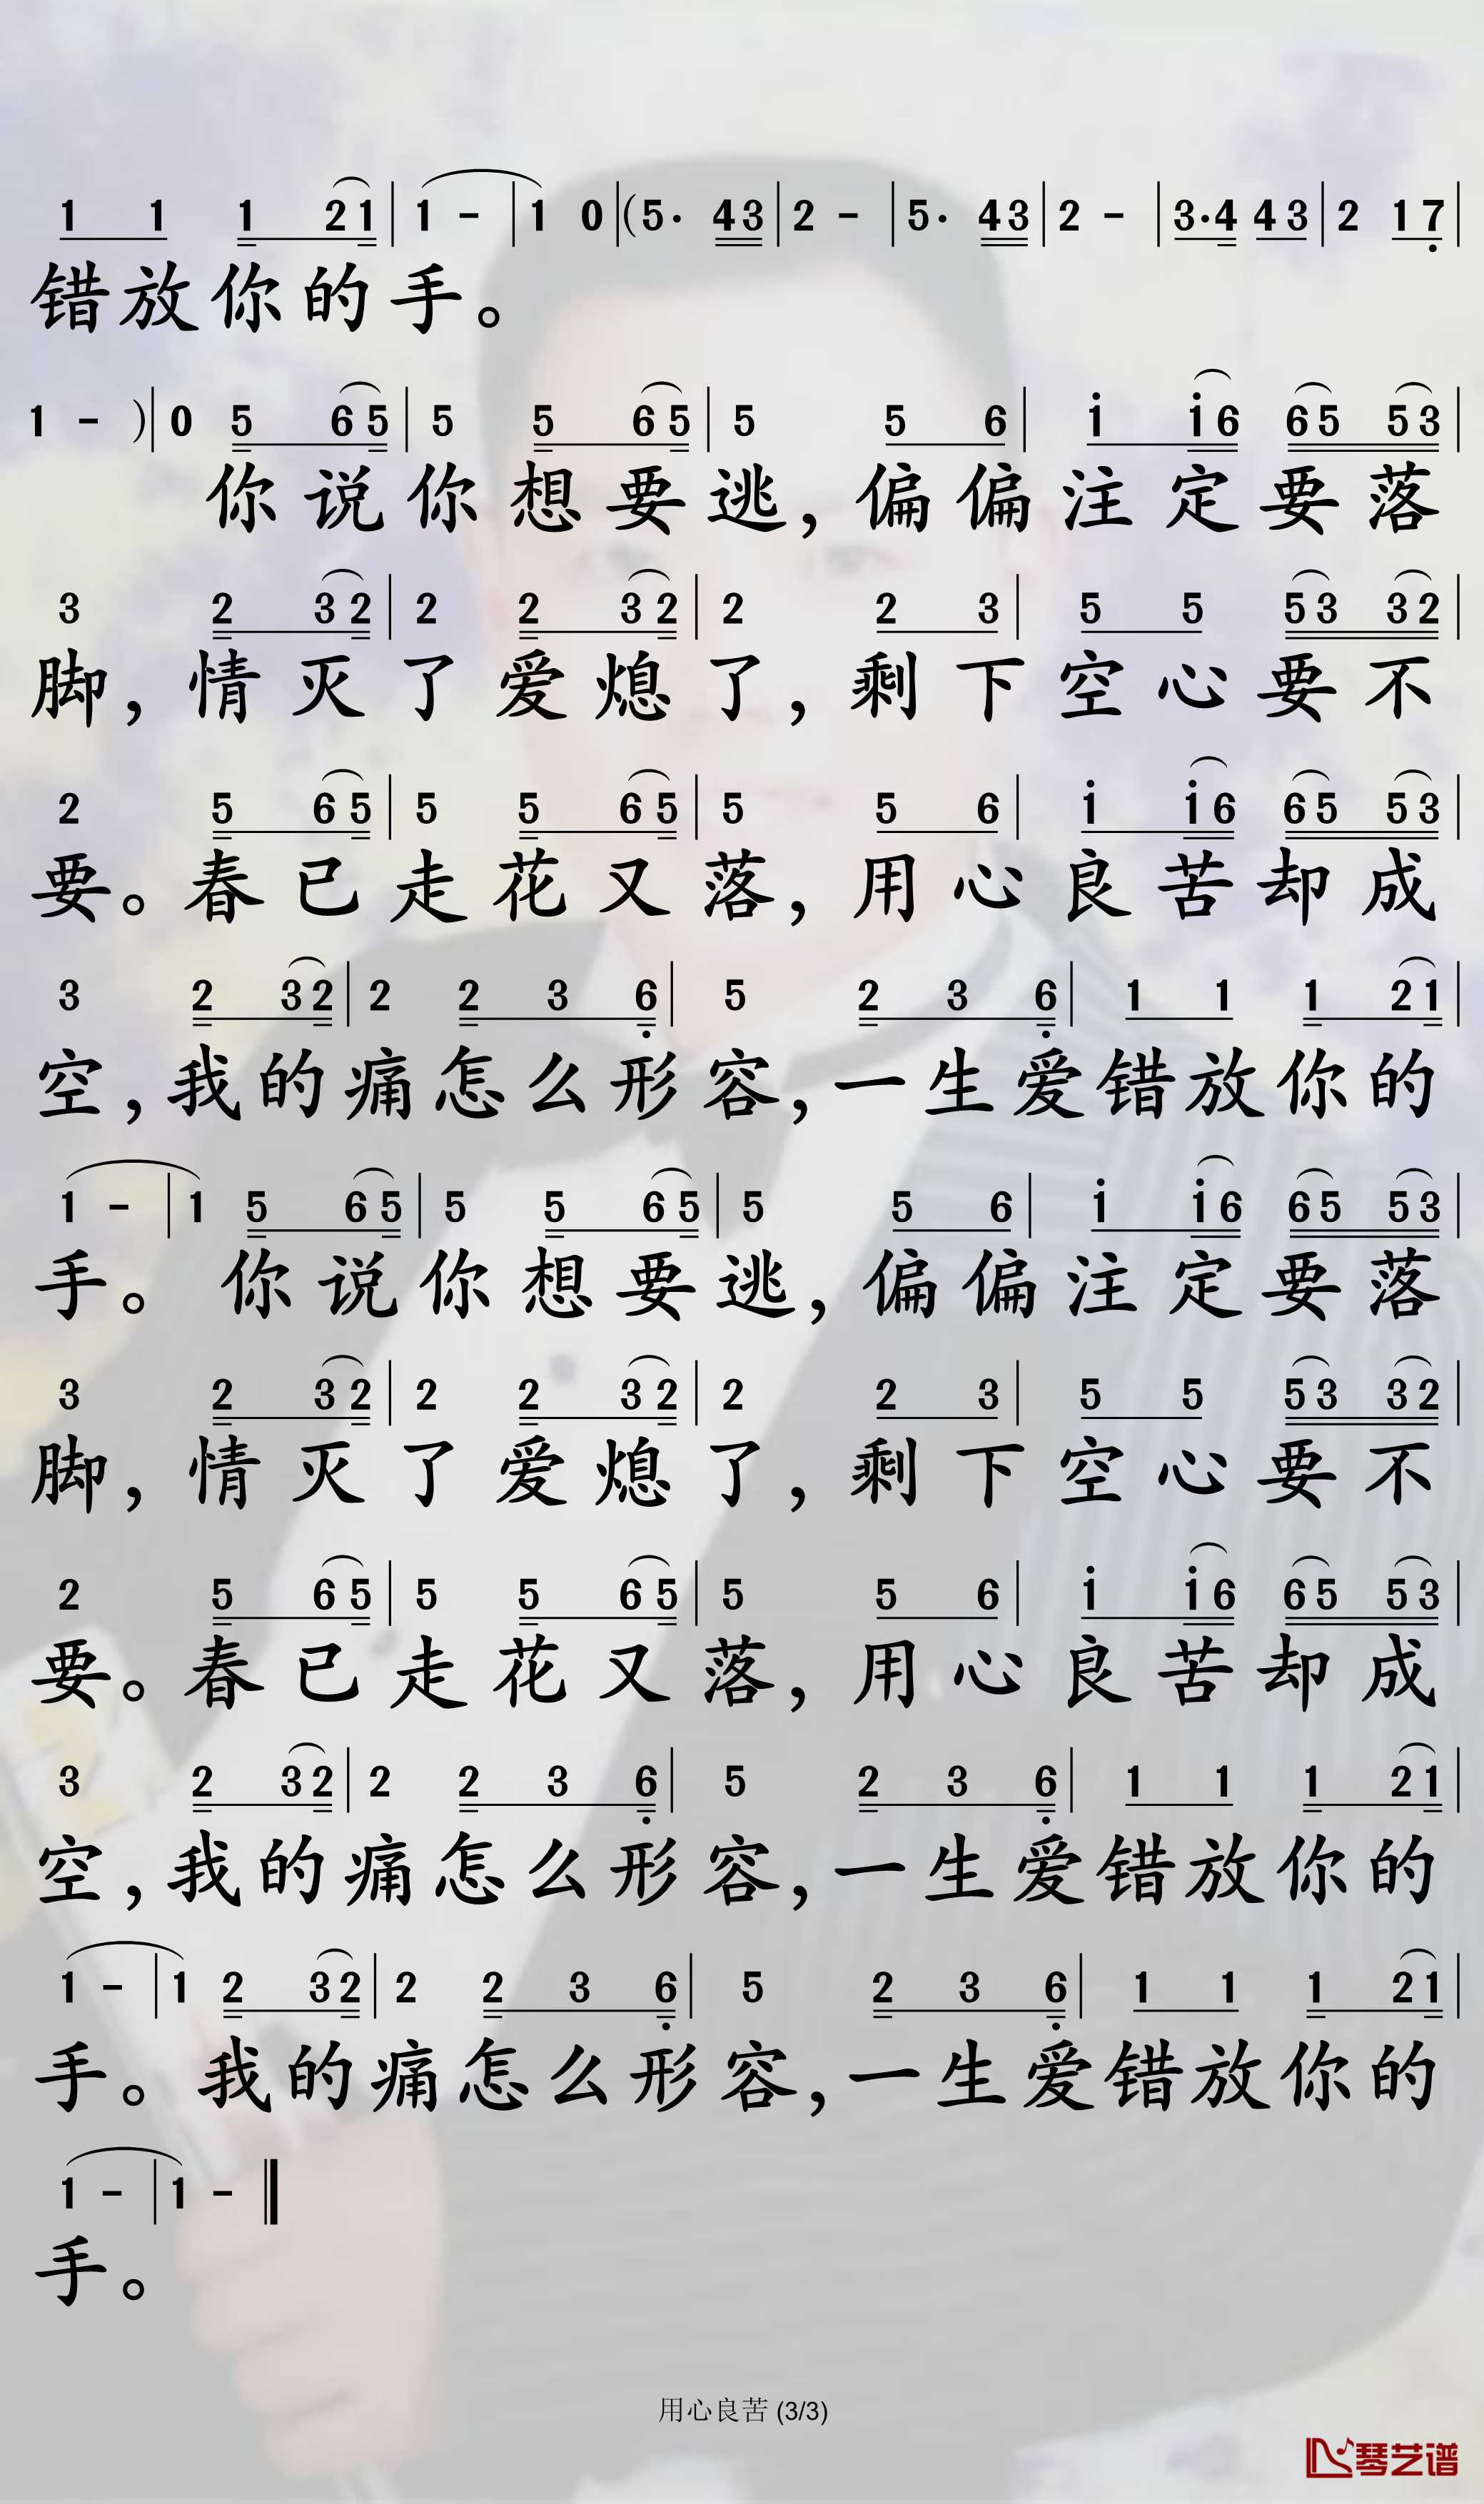 1 1 1 2 1 | 1 - | 1 0 | (5· 4 3 | 2 - | 5· 4 3 | 2 - | 3·4 4 3 | 2 1 7 |
错放你的手。
1 - ) | 0 5 6 5 | 5 5 6 5 | 5 5 6 | 1 1 6 6 5 5 3 |
你说你想要逃，偏偏注定要落
3 2 3 2 | 2 2 3 2 | 2 2 3 | 5 5 5 3 3 2 |
脚，情灭了爱熄了，剩下空心要不
2 5 6 5 | 5 5 6 5 | 5 5 6 | 1 1 6 6 5 5 3 |
要。春已走花又落，用心良苦却成
3 2 3 2 | 2 2 3 6 | 5 2 3 6 | 1 1 1 2 1 |
空，我的痛怎么形容，一生爱错放你的
1 - | 1 5 6 5 | 5 5 6 5 | 5 5 6 | 1 1 6 6 5 5 3 |
手。你说你想要逃，偏偏注定要落
3 2 3 2 | 2 2 3 2 | 2 2 3 | 5 5 5 3 3 2 |
脚，情灭了爱熄了，剩下空心要不
2 5 6 5 | 5 5 6 5 | 5 5 6 | 1 1 6 6 5 5 3 |
要。春已走花又落，用心良苦却成
3 2 3 2 | 2 2 3 6 | 5 2 3 6 | 1 1 1 2 1 |
空，我的痛怎么形容，一生爱错放你的
1 - | 1 2 3 2 | 2 2 3 6 | 5 2 3 6 | 1 1 1 2 1 |
手。我的痛怎么形容，一生爱错放你的
1 - | 1 - ‖
手。
用心良苦 (3/3)
琴艺谱